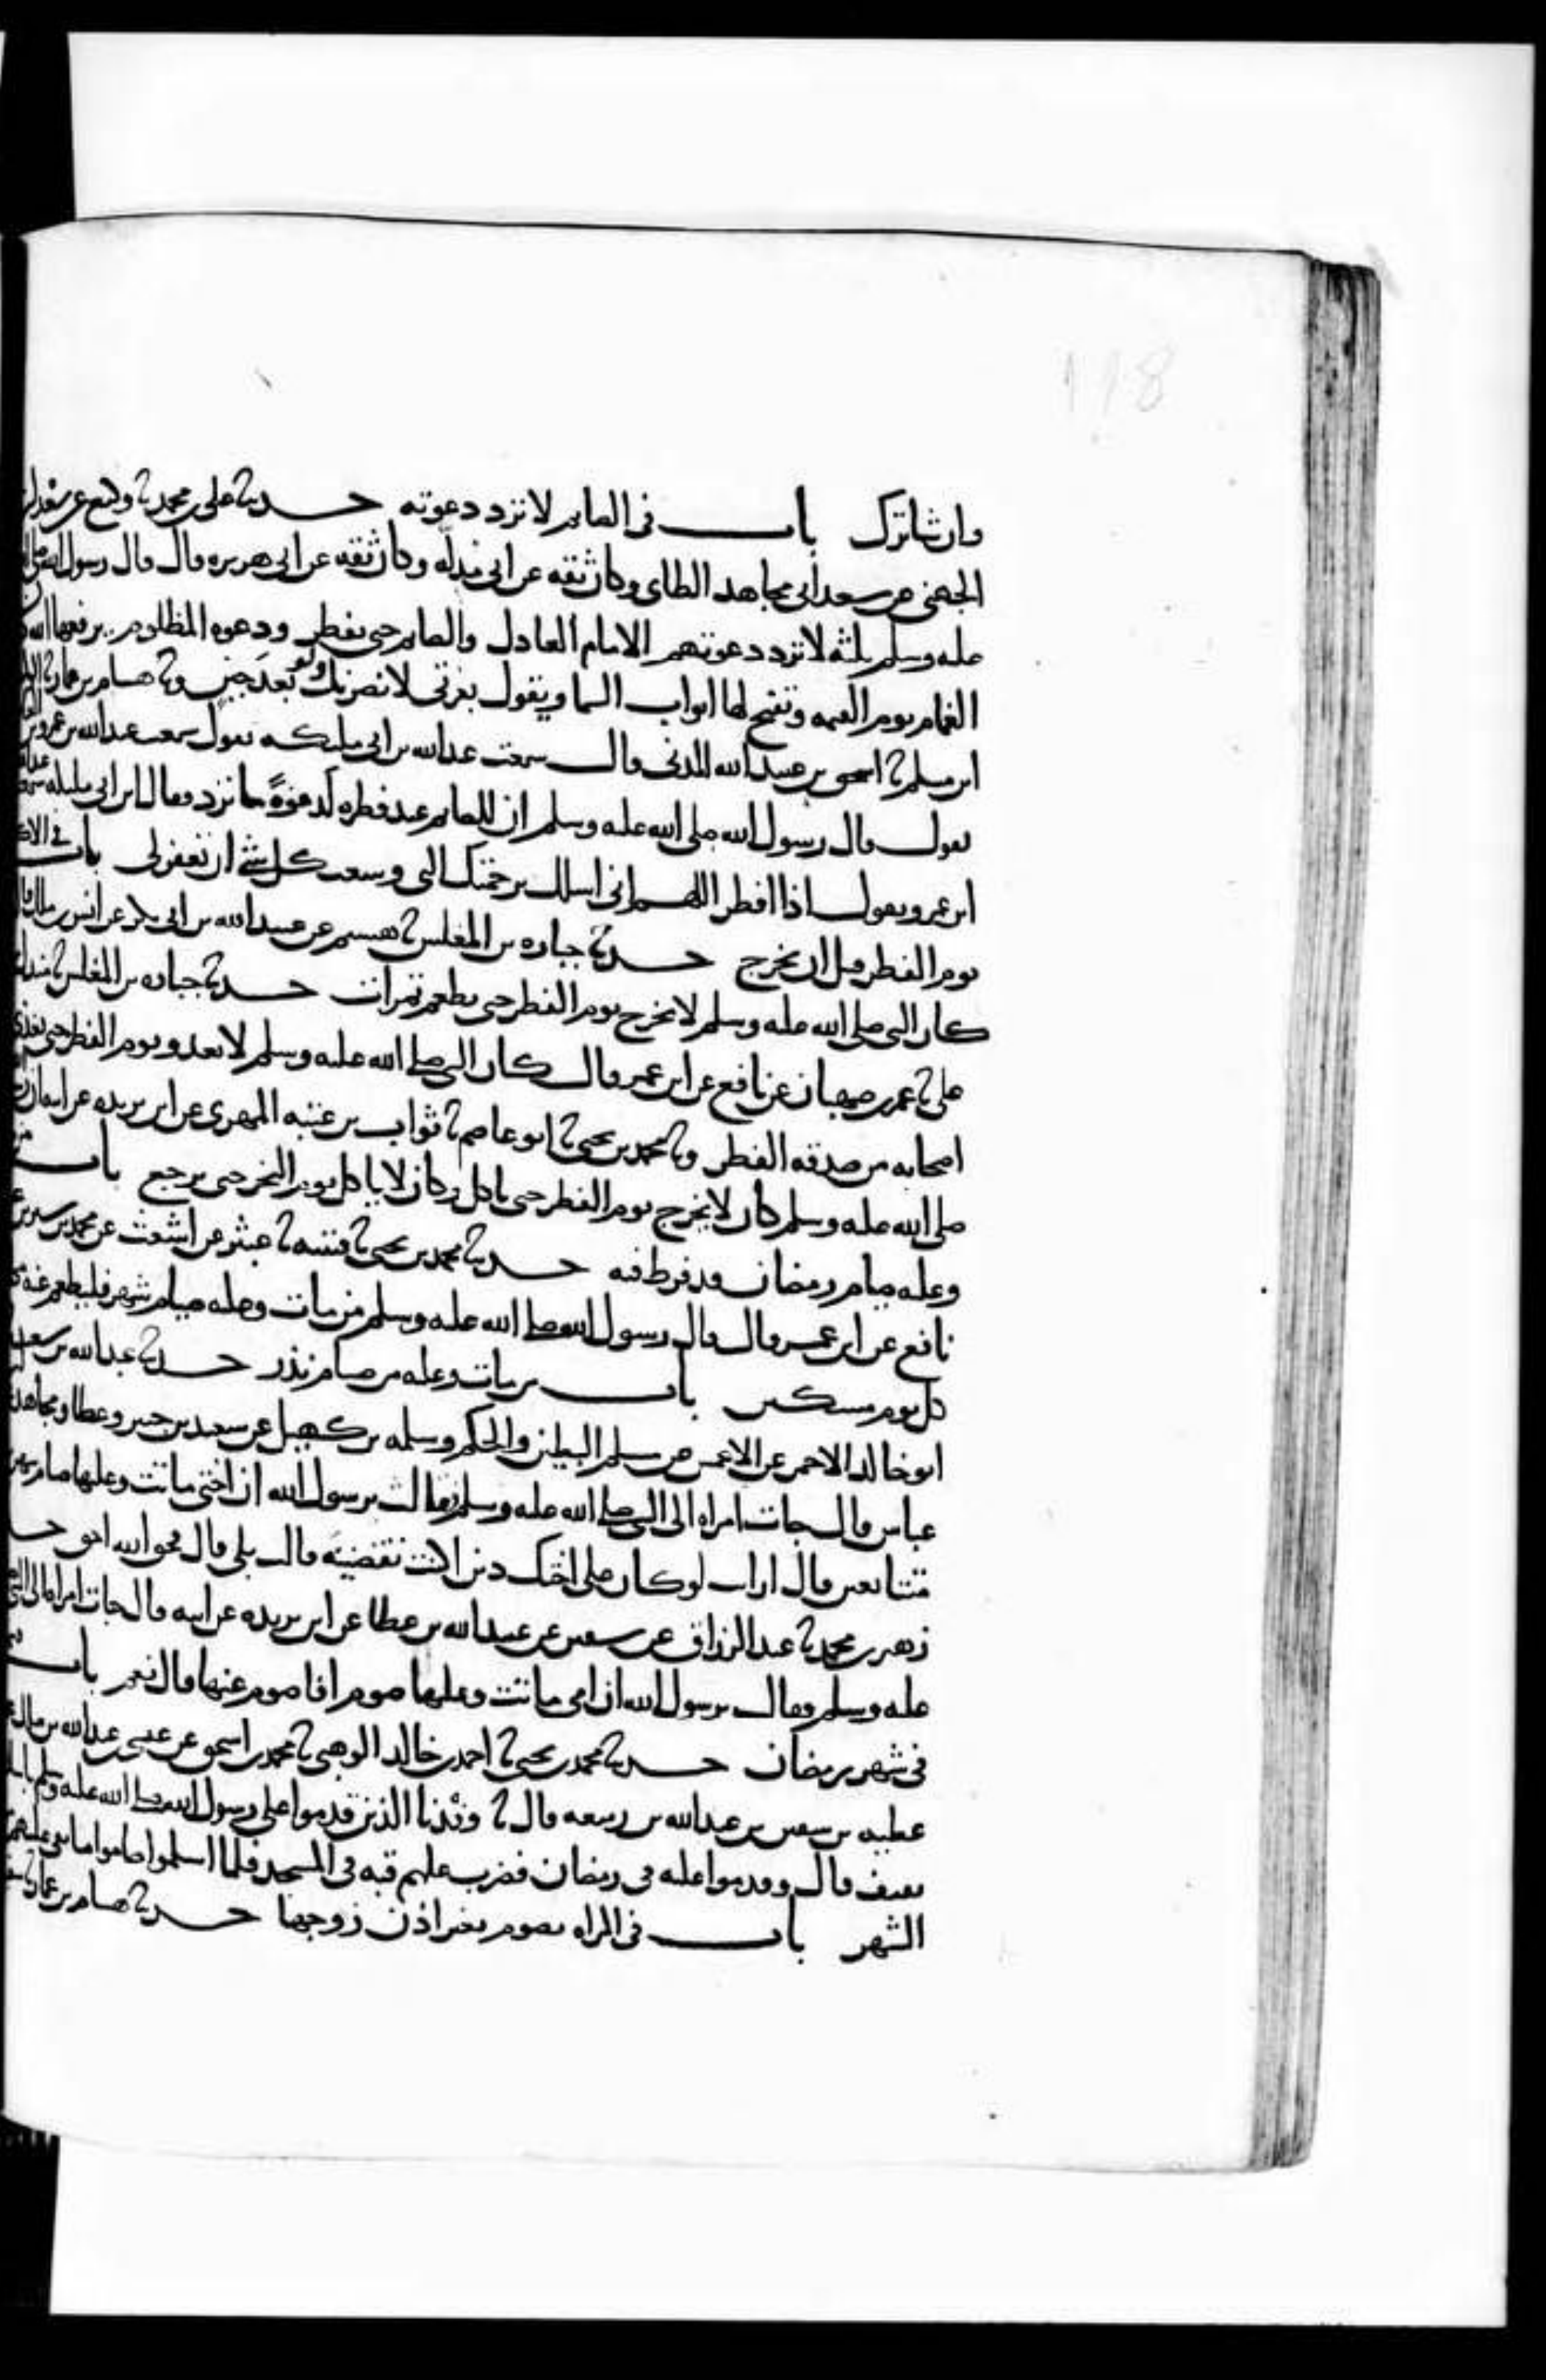 118
وان شا ترك باب في الصايم لا ترد دعوته حدثنا علي بن محمد نا وكيع عن سعدان
الجهني عن سعد ابي مجاهد الطاي وكان ثقه عن ابي مدله وكان ثقه عن ابي هريره قال قال رسول الله صلى الله
عليه وسلم ثلثه لا ترد دعوتهم الامام العادل والصايم حتى يفطر ودعوه المظلوم يرفعها الله
الغمام يوم القيمه وتفتح لها ابواب السما ويقول بعزتي لانصرنك ولو بعد حين ونا هشام بن عمار نا الوليد
ابن مسلم نا اسحق بن عبيد الله المدني قال سمعت عبد الله بن ابي مليكه يقول سمعت عبد الله بن عمرو بن العاص
يقول قال رسول الله صلى الله عليه وسلم ان للصايم عند فطره لدعوة ما ترد وقال ابن ابي مليكه سمعت عبد الله
ابن عمرو يقول اذا افطر اللهم اني اسلك برحمتك التي وسعت كل شي ان تغفر لي باب في الاكل
يوم الفطر قبل ان يخرج حدثنا جباره بن المغلس نا هشيم عن عبيد الله بن ابي بكر عن انس بن مالك قال
كان النبي صلى الله عليه وسلم لا يخرج يوم الفطر حتى يطعم تمرات حدثنا جباره بن المغلس نا مندل بن
علي نا عمر بن صهبان عن نافع عن ابن عمر قال كان النبي صلى الله عليه وسلم لا يغدو يوم الفطر حتى يغدي
اصحابه من صدقه الفطر ونا محمد بن يحيى نا ابو عاصم نا ثواب بن عتبه المهري عن ابن بريده عن ابيه ان
صلى الله عليه وسلم كان لا يخرج يوم الفطر حتى ياكل وكان لا ياكل يوم النحر حتى يرجع باب من
وعليه صيام رمضان قد فرط فيه حدثنا محمد بن يحيى نا قتيبه نا عبثر عن اشعث عن محمد بن سيرين عن
نافع عن ابن عمر قال قال رسول الله صلى الله عليه وسلم من مات وعليه صيام شهر فليطعم عنه
كل يوم مسكين باب من مات وعليه من صيام نذر حدثنا عبد الله بن سعيد
ابو خالد الاحمر عن الاعمش عن مسلم البطين والحكم وسلمه بن كهيل عن سعيد بن جبير وعطا ومجاهد
عباس قال جات امراه الى النبي صلى الله عليه وسلم فقالت يرسول الله ان اختي ماتت وعليها صيام شهرين
متتابعين قال ارايت لو كان على اختك دين اكنت تقضينه قالت بلى قال فحق الله احق حدثنا
زهير بن محمد نا عبد الرزاق عن سفين عن عبد الله بن عطا عن ابن بريده عن ابيه قال جات امراه الى النبي
عليه وسلم فقالت يرسول الله ان امي ماتت وعليها صوم افاصوم عنها قال نعم باب
في شهر رمضان حدثنا محمد بن يحيى نا احمد بن خالد الوهبي نا محمد بن اسحق عن عيسى عبد الله بن مالك
عطيه بن سفين بن عبد الله بن ربيعه قال نا وفدنا الذين قدموا على رسول الله صلى الله عليه وسلم باسلام
ثقيف قال وقدموا عليه في رمضان فضرب عليهم قبه في المسجد فلما اسلموا صاموا ما بقي عليهم
الشهر باب في المراه تصوم بغير اذن زوجها حدثنا هشام بن عمار نا سفين